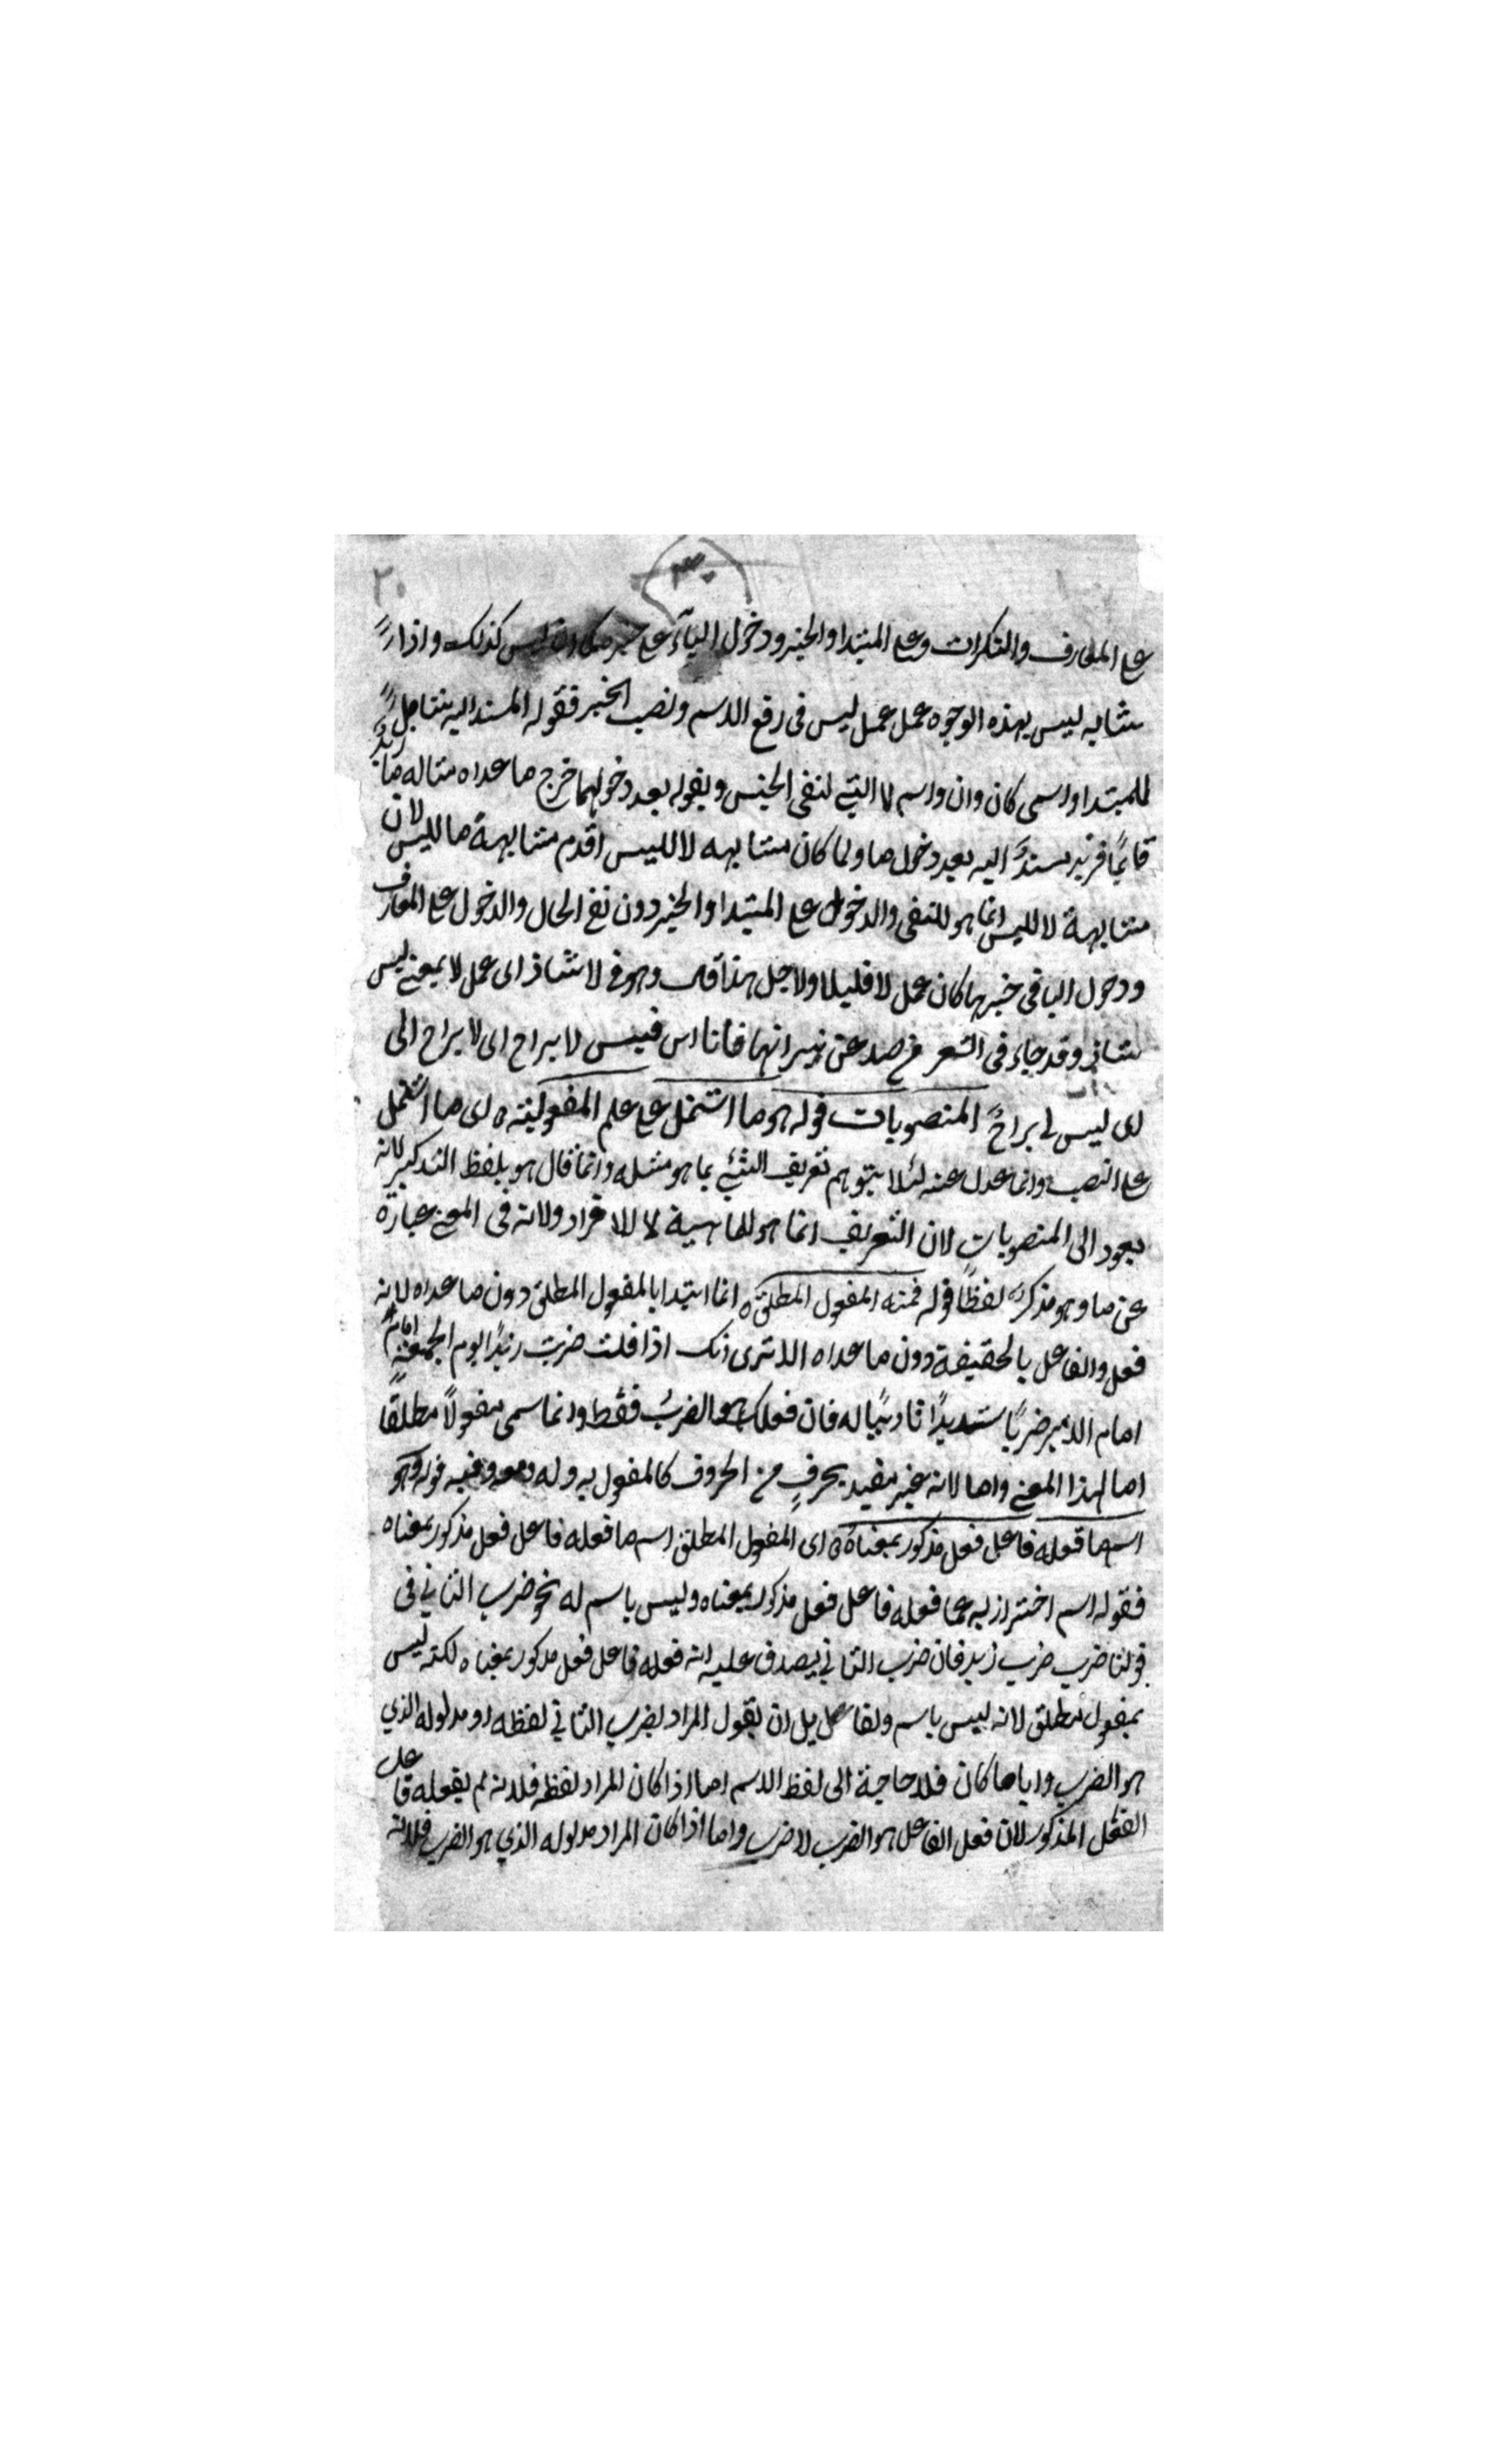 ٢٠
على المعارف والنكرات وعلى المبتدا والخبر ودخول الباء على كذلك واذا
شابه ليس بهذه الوجوه عمل عمل ليس فى رفع الاسم ونصب الخبر فقوله المسند اليه يتناول
للمبتدا واسمى كان وان واسم لا التي لنفى الجنس وبقوله بعد دخولهما خرج ما عداه مثاله ما زيدٌ
قايمًا فزيد مسندٌ اليه بعد دخول ما ولما كان مشابهه لا لليس اقدم مشابهة ما لليس لان
مشابهة لا لليس انما هو للنفى والدخول على المبتدا والخبر دون نفى الحال والدخول على المعارف
ودخول الباء فى خبرها كان عمل لا قليلا ولاجل هذا قال وهو فى لا شاذ اى عمل لا بمعنى ليس
شاذ وقد جاء فى الشعر من صد عن نيرانها فانا ابن قيس لا براح اى لا براح الى
اى ليس لى براحٌ المنصوبات قوله هو ما اشتمل على علم المفعولية ه اى ما اشتمل
على النصب وانما عدل عنه لئلا يتوهم تعريف الشئ بما هو مثله وانما قال هو بلفظ التذكير لانه
يعود الى المنصوبات لان التعريف انما هو للماهية لا للافراد ولانه فى المعنى عبارة
عن ما وهو مذكر لفظًا قوله فمنه المفعول المطلق ه انما ابتدا بالمفعول المطلق دون ما عداه لانه
فعل والفاعل بالحقيقة دون ما عداه الا ترى انك اذا قلت ضربت زيدًا يوم الجمعة امام
امام الامير ضربًا شديدًا تاديبًا له فان فعلك هو الضربُ فقط وانما سمى مفعولاً مطلقًا
اما لهذا المعنى واما لانه غير مفيد بحرفٍ من الحروف كالمفعول به وله ومعه وفيه قوله وهو
اسم ما فعله فاعل فعل مذكور بمعناه ه اى المفعول المطلق اسم ما فعله فاعل فعل مذكور بمعناه
فقوله اسم احترز به عما فعله فاعل فعل مذكور بمعناه وليس باسم له نحو ضرب الثاني فى
قولنا ضرب ضرب زيد فان ضرب الثاني يصدق عليه انه فعله فاعل فعل مذكور بمعناه لكنه ليس
بمفعول مطلق لانه ليس باسم ولقائل ان يقول المراد بضرب الثاني لفظه او مدلوله الذي
هو الضرب وايا ما كان فلا حاجة الى لفظ الاسم اما اذا كان المراد لفظه فلانه لم يفعله فاعل
الفعل المذكور لان فعل الفاعل هو الضرب لا ضرب واما اذا كان المراد مدلوله الذي هو الضرب فلانه